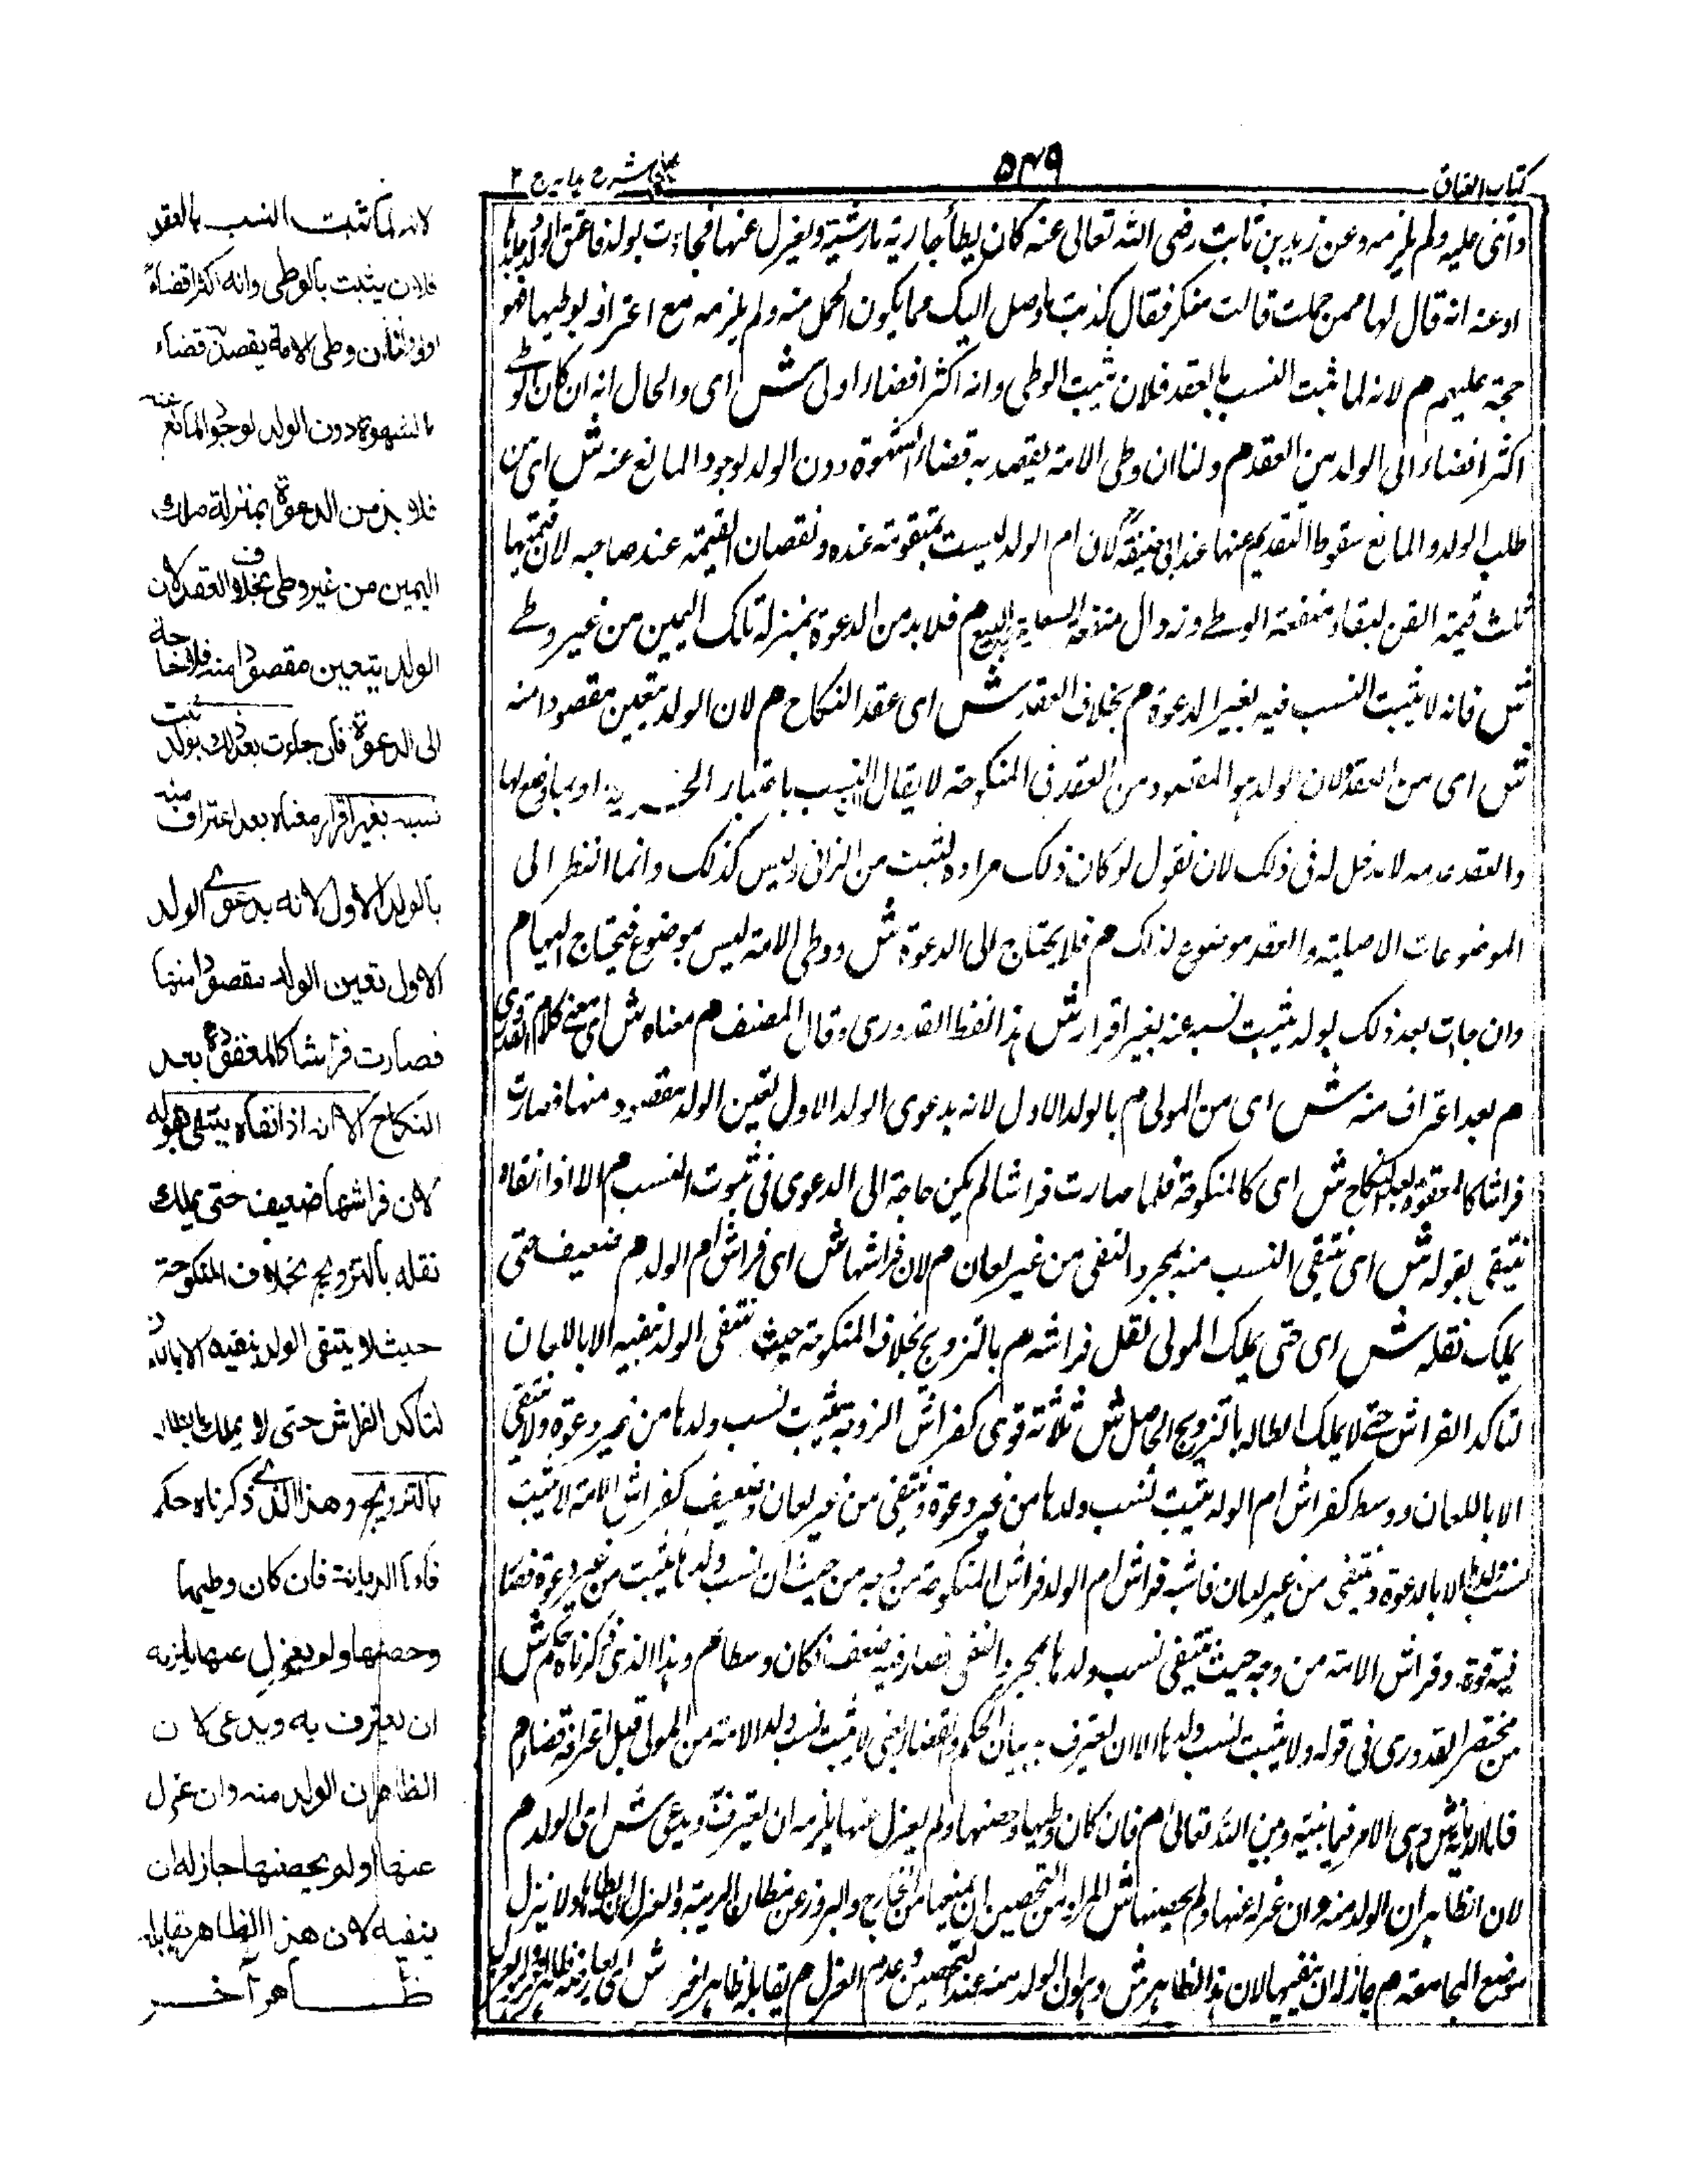 كتاب العتاق
٥٤٩
عينى شرح هدايه ج ٢
وانتفى عليه ولم يلزمه وعن زيد بن ثابت رضى الله تعالى عنه كان يطأ جارية فارسية ويعزل عنها فجاءت بولد فاعتق الولد وجلدها
او عنه انه قال لها ممن حملت قالت منك فقال كذبت ما وصل اليك مما يكون الحمل منه ولم يلزمه مع اعترافه بوطيها فهو
حجة عليهم م لانه لما ثبت النسب بالعقد فلان يثبت بالوطى وانه اكثر افضاء اولى ش اى والحال انه ان كان الوطى
اكثر افضاء الى الولد من العقد م ولنا ان وطى الامة يقصد به قضاء الشهوة دون الولد لوجود المانع عنه ش اى من
طلب الولد والمانع سقوط التقويم عنها عند ابى حنيفة لان ام الولد ليست بمتقومة عنده ونقصان القيمة عند صاحبه لان قيمتها
ثلث قيمة القن لبقاء منفعة الوطى وزوال منفعة السعاية والبيع م فلا بد من الدعوة بمنزلة ملك اليمين من غير وطى
ش فانه لا يثبت النسب فيه بغير الدعوة م بخلاف العقد ش اى عقد النكاح م لان الولد يتعين مقصودا منه
ش اى من العقد لان الولد هو المقصود من العقد فى المنكوحة لا يقال النسب باعتبار الجزئية او بما وضع لها
والعقد عدمه لا دخل له فى ذلك لان نقول لو كان ذلك مراده لثبت من الزانى وليس كذلك وانما النظر الى
الموضوعات الاصلية والعقد موضوع لذلك م فلا يحتاج الى الدعوة ش ووطى الامة ليس بموضوع فيحتاج اليها م
وان جاءت بعد ذلك بولد يثبت نسبه عنه بغير اقرار ش هذا لفظ القدورى وقال المصنف م معناه ش اى معنى كلام القدورى
م بعد اعتراف منه ش اى من المولى م بالولد الاول لانه بدعوى الولد الاول تعين الولد مقصود منها فصارت
فراشا كالمعقودة بعد النكاح ش اى كالمنكوحة فلما صارت فراشا لم يكن حاجة الى الدعوى فى ثبوت النسب م الا اذا نفاه
ينتفى بقوله ش اى ينتفى النسب منه بمجرد النفى من غير لعان م لان فراشها ش اى فراش ام الولد م ضعيف حتى
يملك نقله ش اى حتى يملك المولى نقل فراشه م بالتزويج بخلاف المنكوحة حيث لا ينتفى الولد بنفيه الا باللعان
لتاكد الفراش حتى لا يملك ابطاله بالتزويج الحاصل ش ثلاثة قوى كفراش الزوجة يثبت نسب ولدها من غير دعوة ولا ينتفى
الا باللعان ووسط كفراش ام الولد يثبت نسب ولدها من غير دعوة وينتفى من غير لعان وضعيف كفراش الامة لا يثبت
نسب ولدها الا بالدعوة وينتفى من غير لعان فاشبه فراش ام الولد فراش المنكوحة من وجه من حيث ان نسب ولدها يثبت من غير دعوة فصار
فيه قوة وفراش الامة من وجه حيث ينتفى نسب ولدها بمجرد النفى فصار فيه ضعف فكان وسطا م وهذا الذى ذكرناه حكم ش
من مختصر القدورى فى قوله ولا يثبت نسب ولدها الا ان يعترف به بيان الحكم والقضاء يعنى لا يثبت نسب ولد الامة من المولى قبل اعترافه قضاء م
فاما الديانة ش وهى الامر فيما بينه وبين الله تعالى م فان كان وطيها وحصنها ولم يعزل عنها يلزمه ان يعترف به ويدعى ش اى الولد م
لان الظاهر ان الولد منه وان عزل عنها ولم يحصنها ش المراد من التحصين ان يمنعها من الخارج والبروز عن مظان الريبة والعزل ان يطأها ولا ينزل
موضع المجامعة م جاز له ان ينفيها لان هذا الظاهر ش وهو ان الولد منه عند التحصين وعدم العزل م يقابله ظاهر اخر ش اى يعارضه ظاهر
لانه لما ثبت النسب بالعقد
فلان يثبت بالوطى وانه اكثر افضاء
اولى ولنا ان وطى الامة يقصد به قضاء
الشهوة دون الولد لوجود المانع عنه
فلا بد من الدعوة بمنزلة ملك
اليمين من غير وطى بخلاف العقد لان
الولد يتعين مقصودا منه فلا حاجة
الى الدعوة فان جاءت بعد ذلك بولد يثبت
نسبه بغير اقرار معناه بعد اعتراف منه
بالولد الاول لانه بدعوى الولد
الاول تعين الولد مقصودا منها
فصارت فراشا كالمعقودة بعد
النكاح الا انه اذا نفاه ينتفى بقوله
لان فراشها ضعيف حتى يملك
نقله بالتزويج بخلاف المنكوحة
حيث لا ينتفى الولد بنفيه الا باللعان
لتاكد الفراش حتى لا يملك ابطاله
بالتزويج وهذا الذى ذكرناه حكم
فاما الديانة فان كان وطيها
وحصنها ولم يعزل عنها يلزمه
ان يعترف به ويدعى لان
الظاهر ان الولد منه وان عزل
عنها او لم يحصنها جاز له ان
ينفيه لان هذا الظاهر يقابله
ظاهر آخر